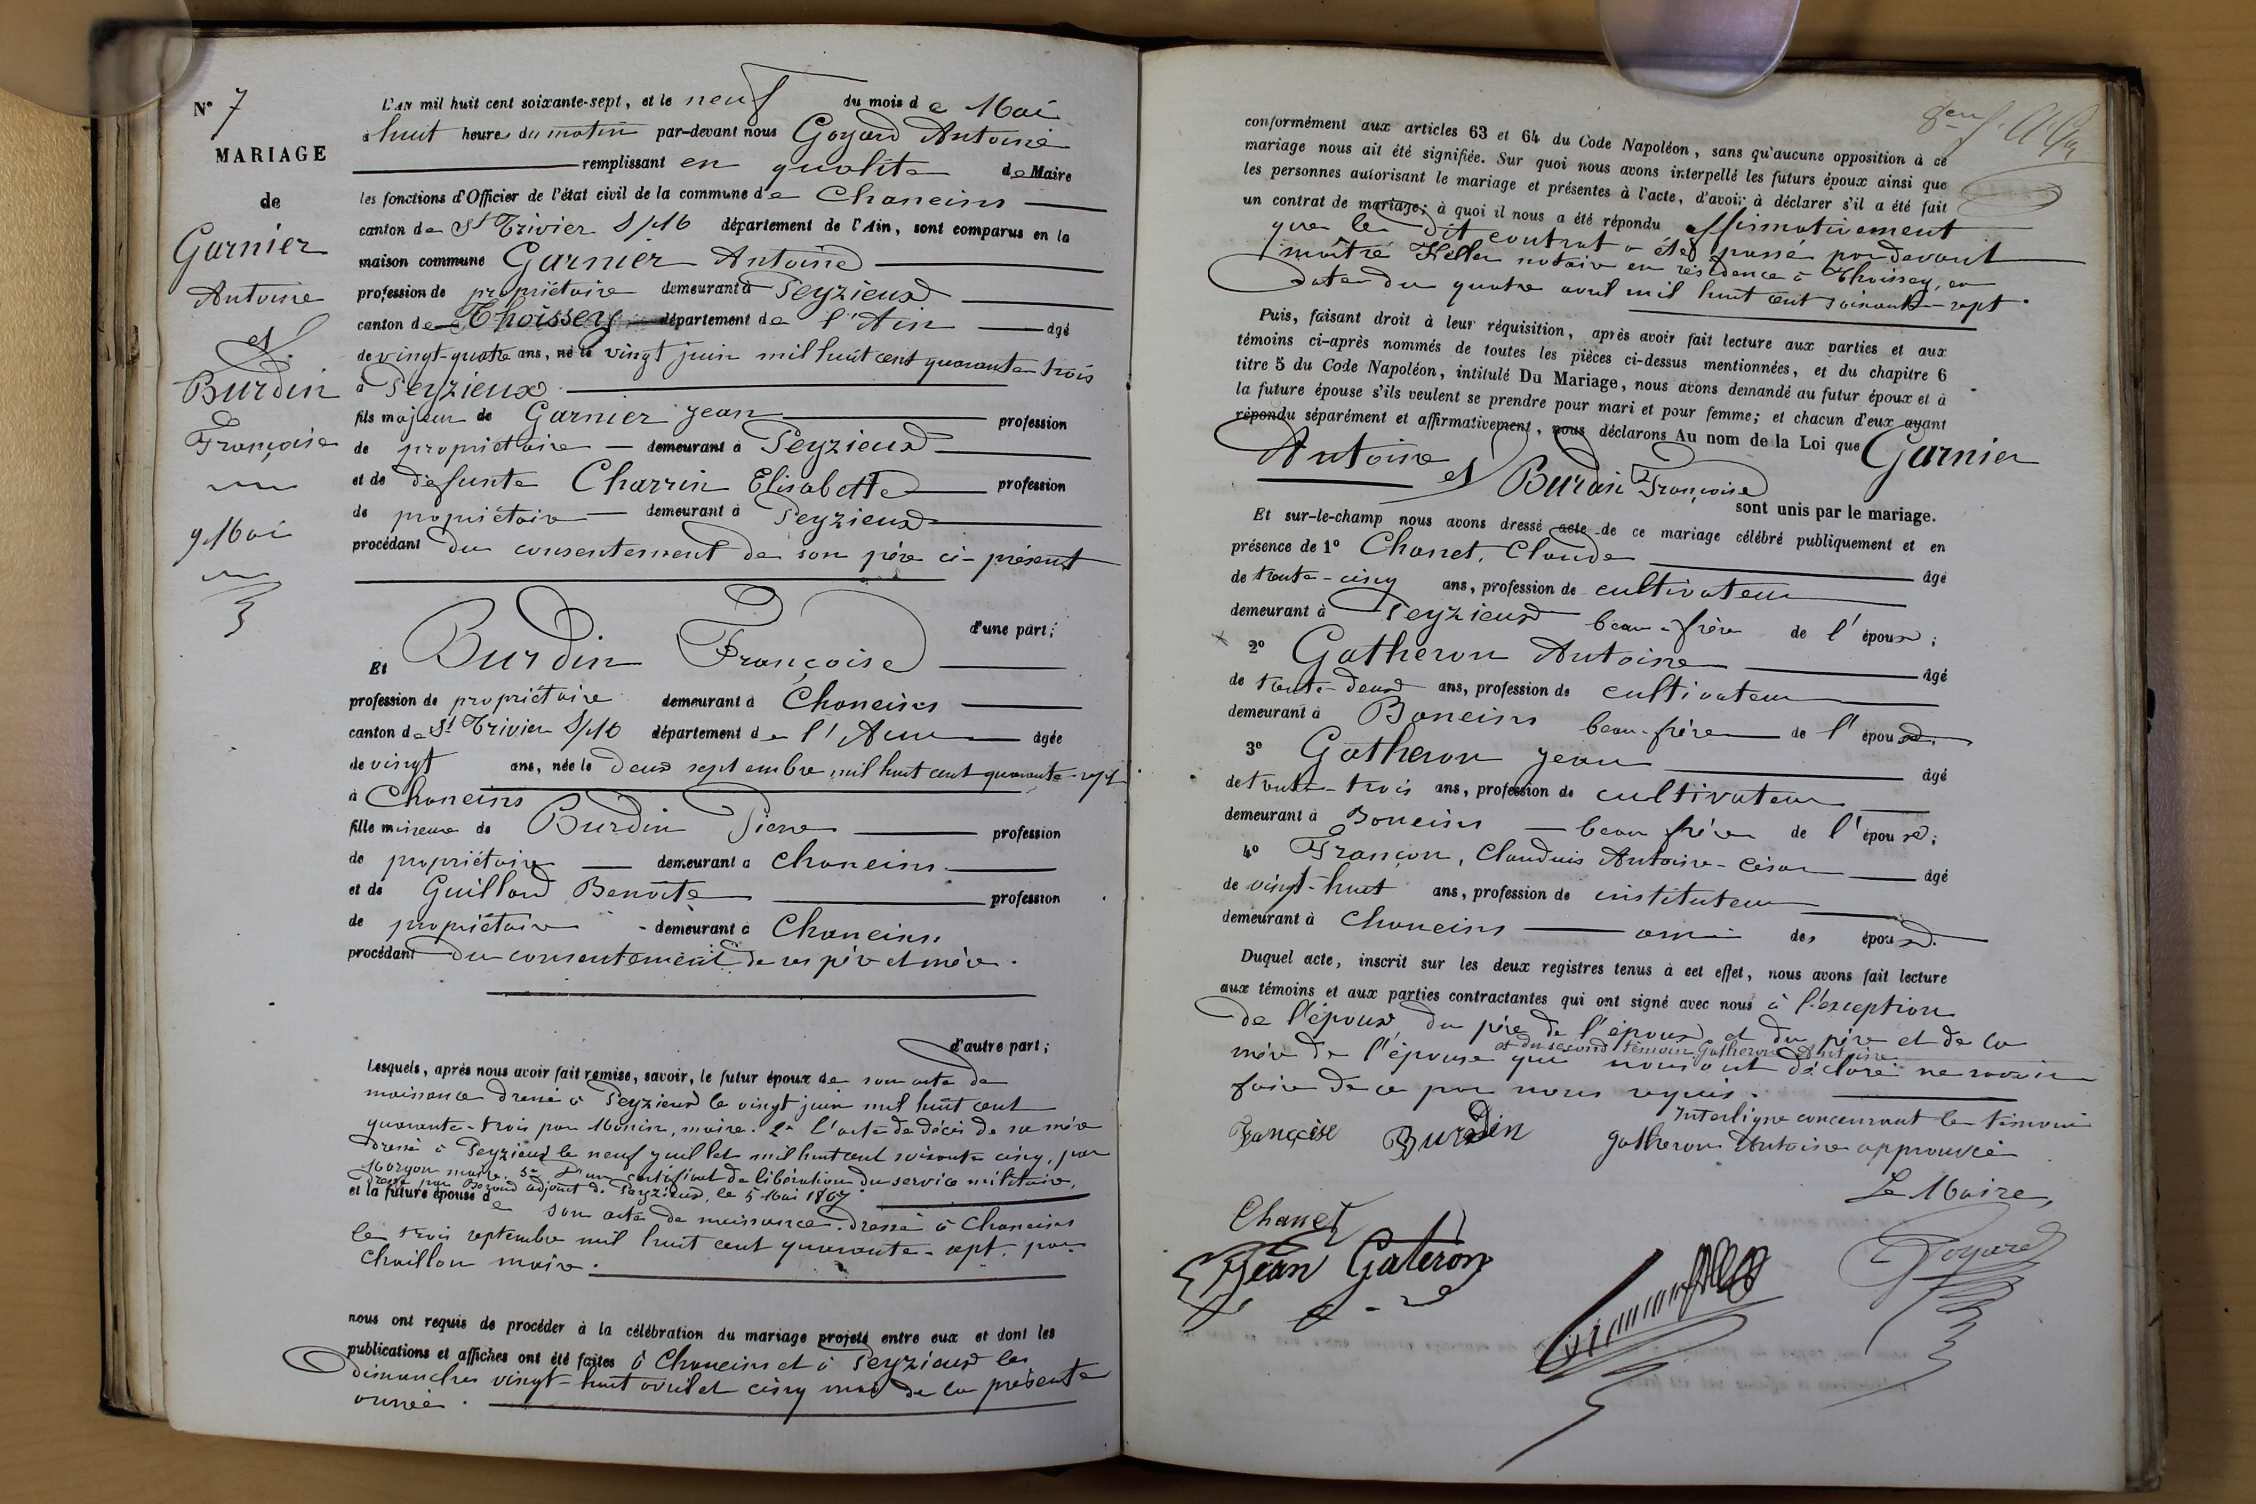 N° 7
MARIAGE
de
Garnier
Antoine
et
Burdin
Françoise
9 Mai
L'AN mil huit cent soixante-sept, et le neuf du mois de Mai
à huit heures du matin par-devant nous Goyard Antoine
remplissant en qualité de Maire
les fonctions d'Officier de l'état civil de la commune de Chaneins
canton de St Trivier S/M département de l'Ain, sont comparus en la
maison commune Garnier Antoine
profession de propriétaire demeurant à Peyzieux
canton de Thoissey département de l'Ain âgé
de vingt-quatre ans, né le vingt juin mil huit cent quarante trois
à Peyzieux
fils majeur de Garnier Jean profession
de propriétaire demeurant à Peyzieux
et de défunte Charrin Elisabeth profession
de propriétaire demeurant à Peyzieux
procédant du consentement de son père ci-présent
d'une part;
Et Burdin Françoise
profession de propriétaire demeurant à Chaneins
canton de St Trivier S/M département de l'Ain âgée
de vingt ans, née le deux septembre mil huit cent quarante-sept
à Chaneins
fille mineure de Burdin Pierre profession
de propriétaire demeurant à Chaneins
et de Guillard Benoîte profession
de propriétaire demeurant à Chaneins
procédant du consentement de ses père et mère.
d'autre part;
Lesquels, après nous avoir fait remise, savoir, le futur époux de son acte de
naissance dressé à Peyzieux le vingt juin mil huit cent
quarante-trois par Monin, maire. 2° l'acte de décès de sa mère
dressé à Peyzieux le neuf juillet mil huit cent soixante cinq, par
Morgon maire. 3° d'un certificat de libération du service militaire,
dressé par adjoint de Peyzieux, le 5 Mai 1867.
et la future épouse de son acte de naissance dressé à Chaneins
le trois septembre mil huit cent quarante-sept, par
Chaillou maire.
nous ont requis de procéder à la célébration du mariage projeté entre eux et dont les
publications et affiches ont été faites à Chaneins et à Peyzieux les
dimanches vingt-huit avril et cinq mai de la présente
année.
conformément aux articles 63 et 64 du Code Napoléon, sans qu'aucune opposition à ce
mariage nous ait été signifiée. Sur quoi nous avons interpellé les futurs époux ainsi que
les personnes autorisant le mariage et présentes à l'acte, d'avoir à déclarer s'il a été fait
un contrat de mariage; à quoi il nous a été répondu affirmativement
que le dit contrat a été passé par devant
maître Keller notaire en résidence à Thoissey, en
date du quatre avril mil huit cent soixante-sept.
Puis, faisant droit à leur réquisition, après avoir fait lecture aux parties et aux
témoins ci-après nommés de toutes les pièces ci-dessus mentionnées, et du chapitre 6
titre 5 du Code Napoléon, intitulé Du Mariage, nous avons demandé au futur époux et à
la future épouse s'ils veulent se prendre pour mari et pour femme; et chacun d'eux ayant
répondu séparément et affirmativement, nous déclarons Au nom de la Loi que Garnier
Antoine et Burdin Françoise
sont unis par le mariage.
Et sur-le-champ nous avons dressé acte de ce mariage célébré publiquement et en
présence de 1° Chanet, Claude âgé
de trente-cinq ans, profession de cultivateur
demeurant à Peyzieux beau-frère de l'époux;
2° Gatheron Antoine âgé
de trente-deux ans, profession de cultivateur
demeurant à Baneins beau-frère de l'époux.
3° Gatheron Jean âgé
de trente-trois ans, profession de cultivateur
demeurant à Baneins beau frère de l'époux;
4° Françon, Claudius Antoine-César âgé
de vingt-huit ans, profession de instituteur
demeurant à Chaneins ami des époux.
Duquel acte, inscrit sur les deux registres tenus à cet effet, nous avons fait lecture
aux témoins et aux parties contractantes qui ont signé avec nous à l'exception
de l'époux, du père de l'époux, et du père et de la
et du second témoin Gatheron Antoine
mère de l'épouse qui nous ont déclaré ne savoir
faire de ce par nous requis.
Interligne concernant le témoin
Gatheron Antoine approuvée
Françoise Burdin
Le Maire,
Chanet
Jean Gateron
Goyard